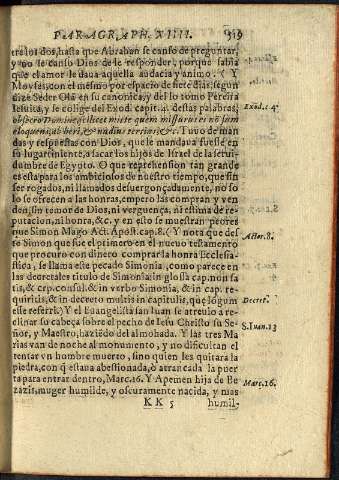 PARAGRAPH. XIIII. 319
tre los dos, hasta que Abrahan se canso de preguntar,
y no se canso Dios de le responder, porque sabia
que el amor le daua aquella audacia y animo. (Y
Moyses, con el mismo por espacio de siete dias, segun
dize Seder Olã en su canonica, y del lo tomo Pereira
Iesuita, y se colige del Exod. capit. 4. destas palabras,
Exod. c. 4.
obsecro Domine, &c. mitte quem missurus es nõ sum
eloquens, ab heri, & nudius tertius &c. Tuuo deman
das y respuestas con Dios, que le mandaua fuesse en
su lugarteniente, a sacar los hijos de Israel de la seruidumbre
de Egypto. O que reprehension tan grande
es esta para los ambiciosos de nuestro tiempo, que sin
ser rogados, ni llamados desuergonçadamente, no so
lo se ofrecen a las honras, empero las compran y ven
den, sin temor de Dios, ni verguença, ni estima de re
putacion, ni honra, &c. y en esto se muestran peores
que Simon Mago Act. Apost. cap. 8. (Y nota que des
Actor. 8.
te Simon que fue el primero en el nueuo testamento
que procuro con dinero comprar la honra Ecclesia-
stica, se llama este pecado Simonia, como parece en
las decretales titulo de Simonia in glossa cap. non sa
tis, & c
requiritis, & in decreto multis in capitulis, que lõgum
Decret.
esse referri.) Y el Euangelista san Iuan se atreuio a re-
clinar su cabeça sobre el pecho de Iesu Christo su Se-
S. Iuan. 13
ñor, y Maestro, haziẽdo del almohada. Y las tres Ma
rias van de noche al monumento, y no dificultan el
tentar vn hombre muerto, sino quien les quitara la
piedra, con q̃ estaua abessionada, ò atrancada la puer
ta para entrar dentro, Marc. 16. Y Apemen hija de Be
Marc. 16.
zazis, muger humilde, y oscuramente nacida, y mas
KK 5 humil-